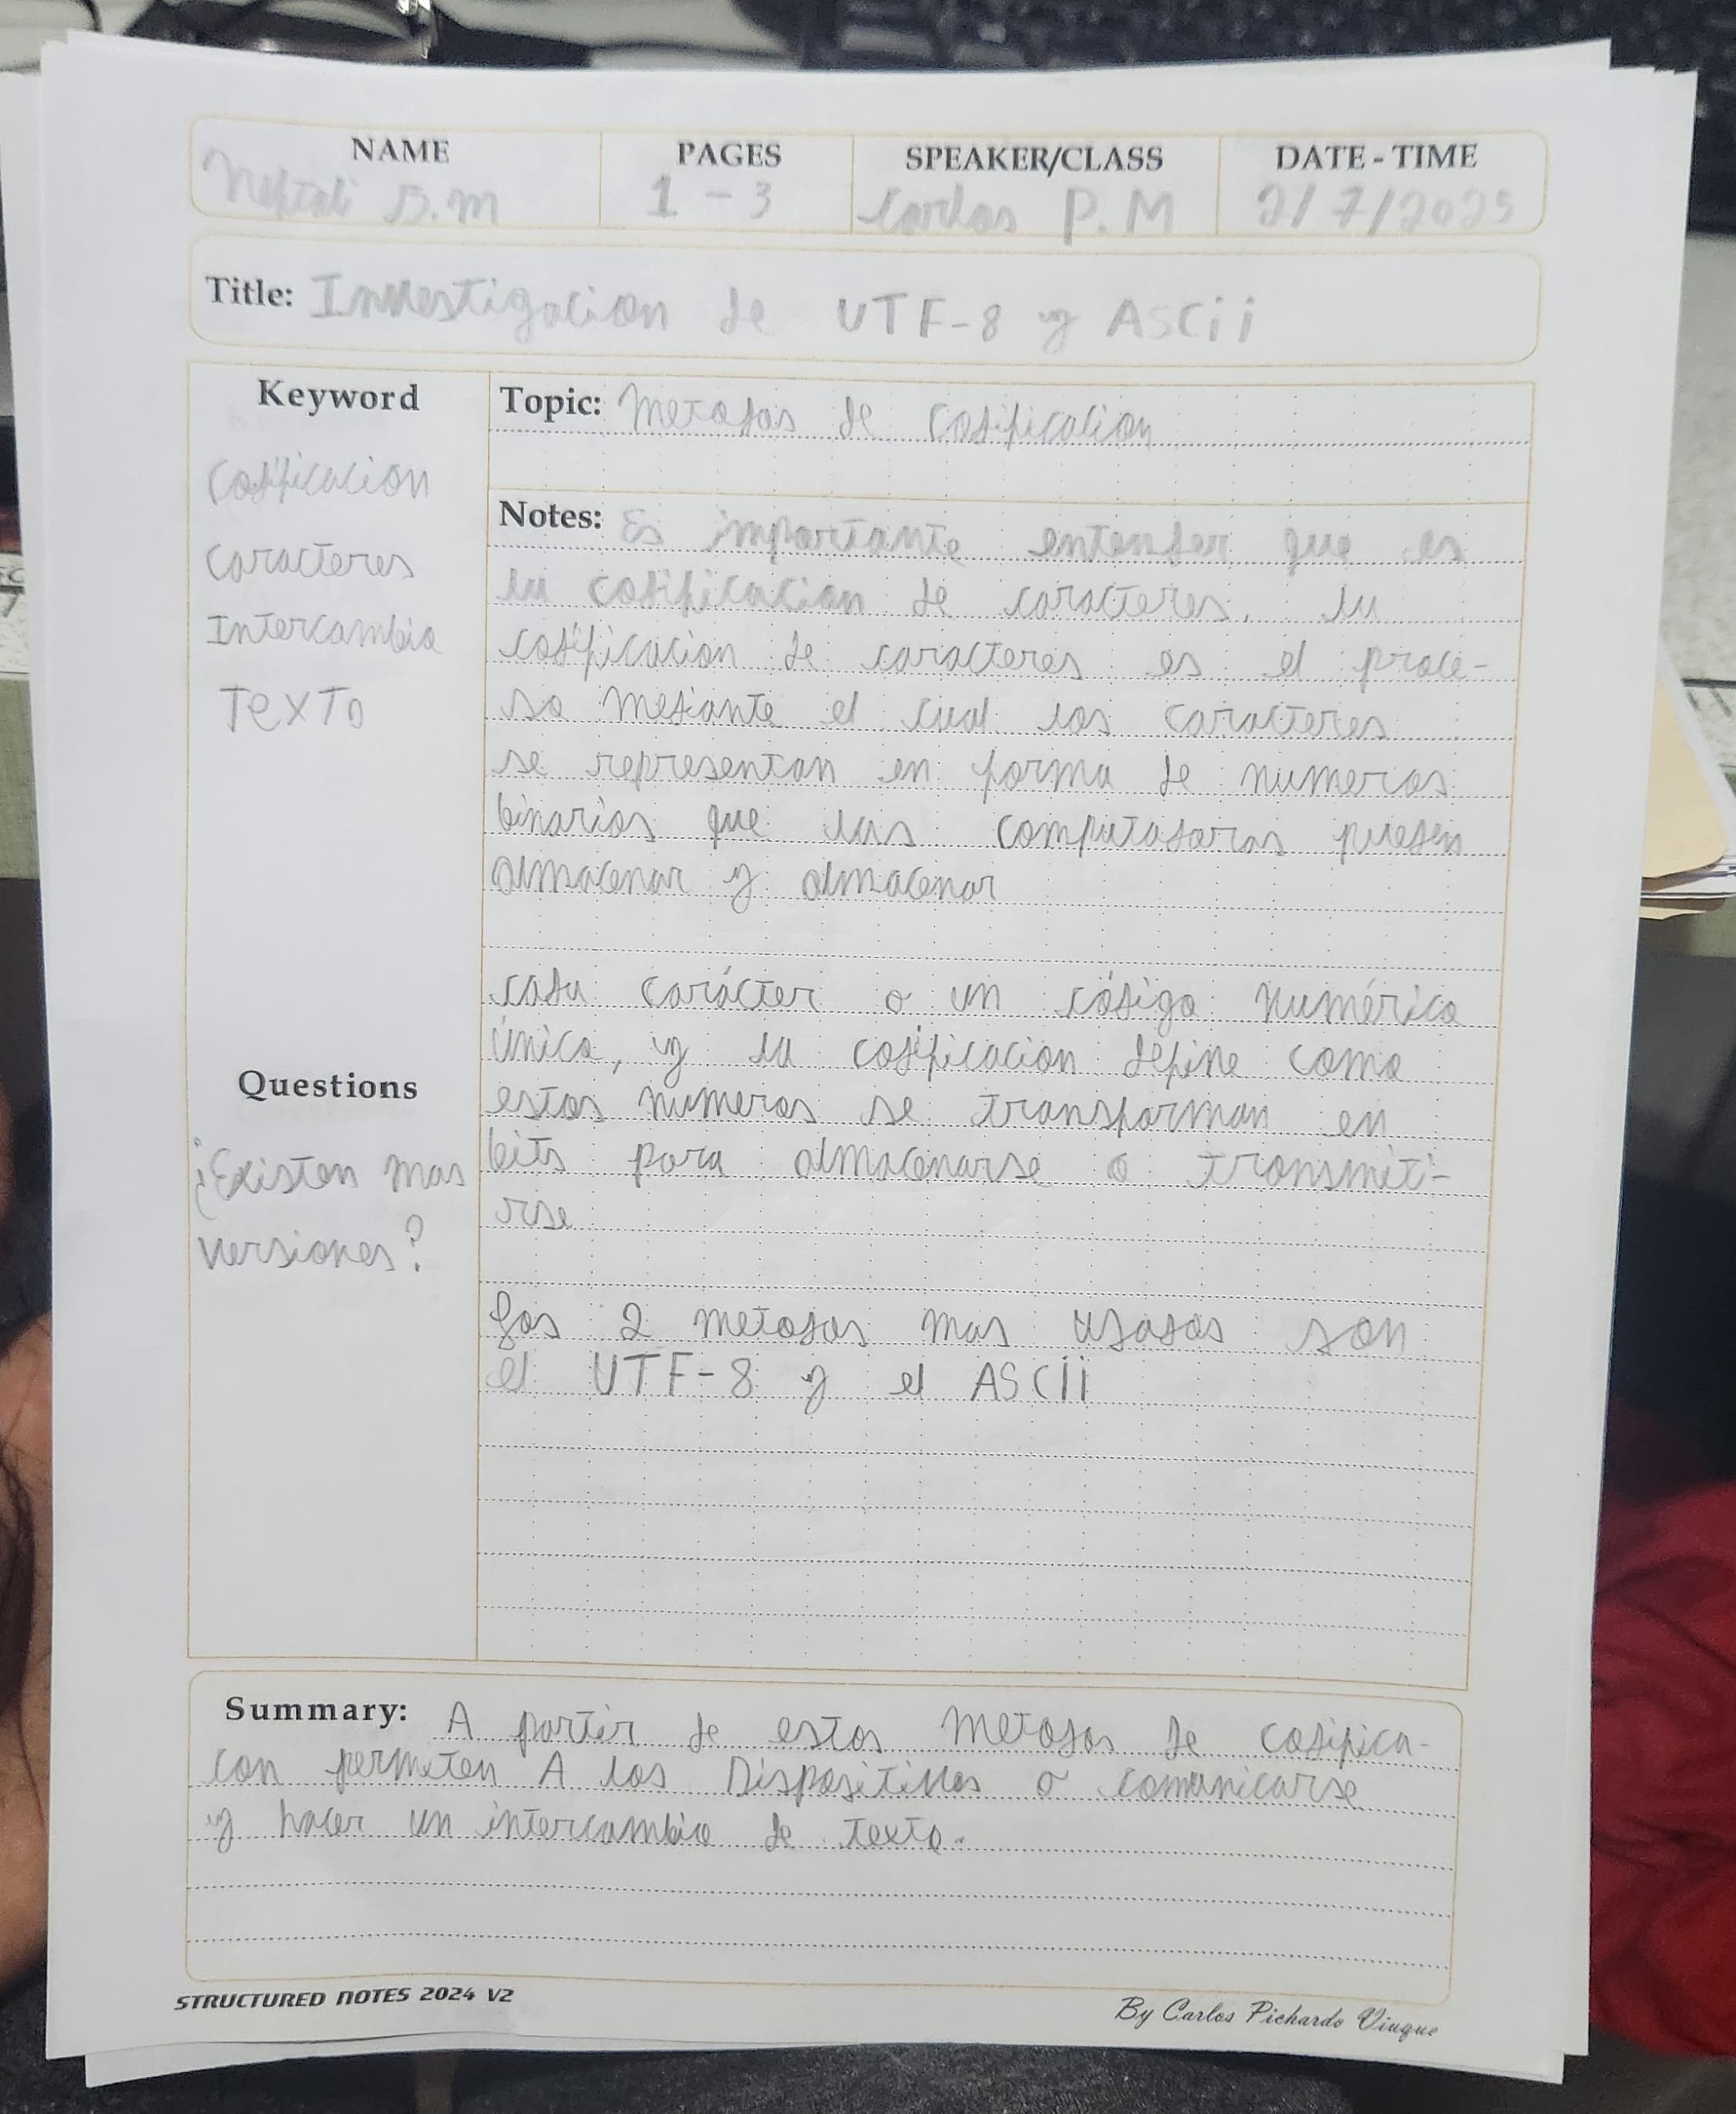 NAME PAGES SPEAKER/CLASS DATE - TIME
Neftali B.M 1 - 3 Carlos P.M 2/7/2025
Title: Investigacion de UTF-8 y ASCii
Keyword
Codificacion
Caracteres
Intercambio
TexTo
Questions
¿Existen mas
versiones?
Topic: Metodos de Codificacion
Notes: Es importante entender que es
la codificacion de caracteres. la
codificacion de caracteres es el proce-
so mediante el cual los caracteres
se representan en forma de numeros
binarios que las computadoras pueden
almacenar y almacenar
cada carácter o un código numérico
único, y la codificacion define como
estos numeros se transforman en
bits para almacenarse o transmiti-
rse
Los 2 metodos mas usados son
el UTF-8 y el ASCii
Summary: A partir de estos metodos de codifica-
con permiten A los Dispositivos o comunicarse
y hacer un intercambio de texto.
STRUCTURED NOTES 2024 V2
By Carlos Pichardo Viuque